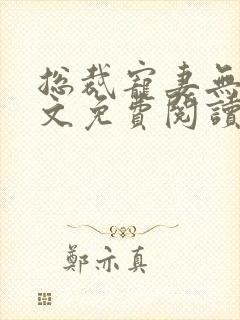 总裁寵妻無
文免費閱讀
鄭亦真